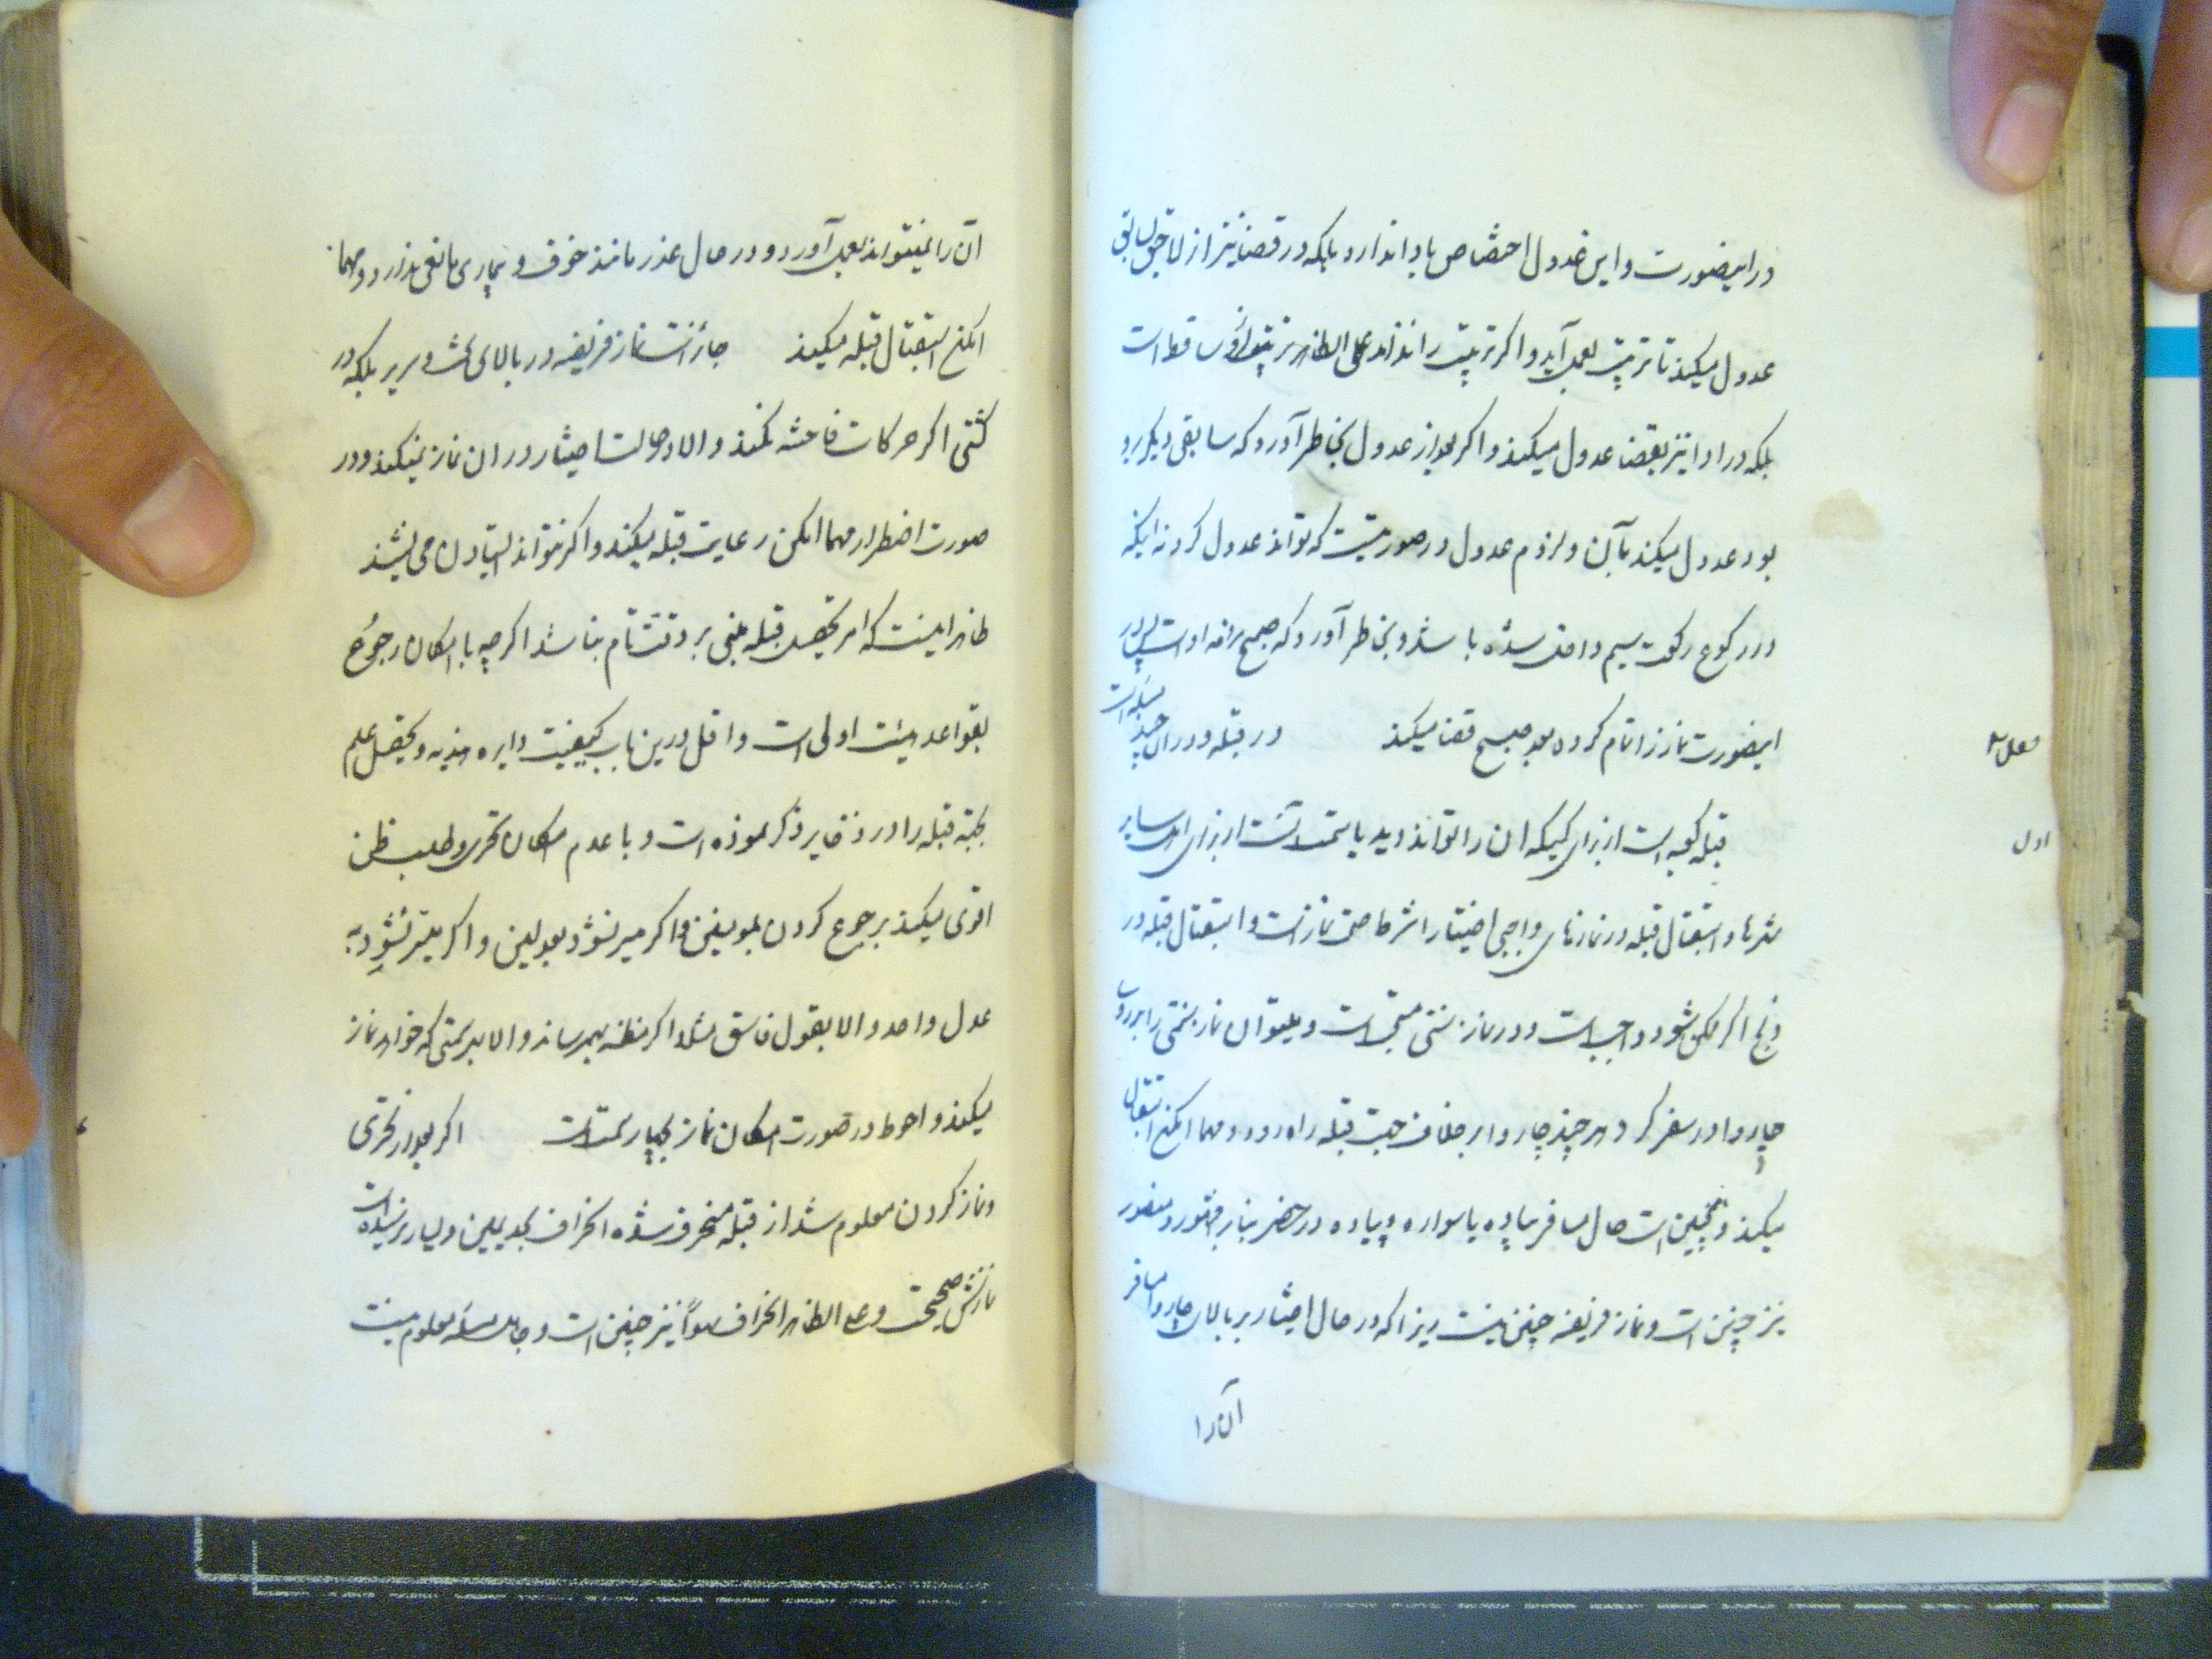 در این صورت و این عدول اختصاص بادا ندارد بلکه در قضا نیز از لاحق بسابق
عدول میکند تا ترتیب بعمل آید و اکر ترتیب را نداند علی الظاهر ترتیب از او ساقط است
بلکه در ادا نیز بقضا عدول میکند و اکر بعد از عدول بخاطر آورد که سابقی دیکر بر او
بود عدول میکند بآن و لزوم عدول در صورتیست که تواند عدول کرد نه اینکه
در رکوع رکعت سیم داخل شده باشد و بخاطر آورد که صبح نزد او است پس در
اینصورت نماز را تمام کرده بعد صبح قضا میکند در قبله و در ان چند مسئله است
فصل ۲
اول
قبله کعبه است از برای کسیکه ان را تواند دید یا سمت آنست از برای اهل سایر
شهرها و استقبال قبله در نمازهای واجبی اختیارا شرط صحت نماز است و استقبال قبله در
ذبح اکر ممکن شود واجب است و در نماز سنتی مستحب است و میتوان نماز سنتی را بر روی
چاروا در سفر کرد هر چند چاروا بر خلاف جهت قبله راه رود و مهما امکن استقبال
میکند و همچنین است حال مسافر پیاده یا سواره و پیاده در حضر بنا بر مشهور و منصور
نیز چنین است و نماز فریضه چنین نیست زیرا که در حال اختیار بر بالای چاروا مسافر
آن را
آن را نمیتواند بعمل آورد و در حال عذر مانند خوف و بیماری مانعی ندارد و مهما
امکن استقبال قبله میکند جائز است نماز فریضه در بالای تخت و سریر بلکه در
کشتی اکر حرکات فاحشه نکند و الا در حالت اختیار در ان نماز نمیکند و در
صورت اضطرار مهما امکن رعایت قبله میکند و اکر نتواند ایستادن می نشیند
ظاهر اینست که امر تحصیل قبله مبنی بر دقت تام نباشد اکر چه با امکان رجوع
بقواعد هیئت اولی است و اقل درین باب کیفیت دایره هندیه و تحصیل علم
بجهة قبله را در ذخایر ذکر نموده است و با عدم امکان تحری و طلب ظن
اقوی میکند برجوع کردن بمومنین و اکر میسر نشود بعدلین و اکر میسر نشود به
عدل واحد و الا بقول فاسق مثلا اکر مظنه بهم رساند و الا بهر سمتی که خواهد نماز
میکند و احوط در صورت امکان نماز بچهار سمت است اکر بعد از تحری
و نماز کردن معلوم شد از قبله منحرف شده انحراف بحد یمین و یسار نرسیده است
نمازش صحیح است و علی الظاهر انحراف سهوا نیز چنین است و جاهل مسئله معلوم نیست